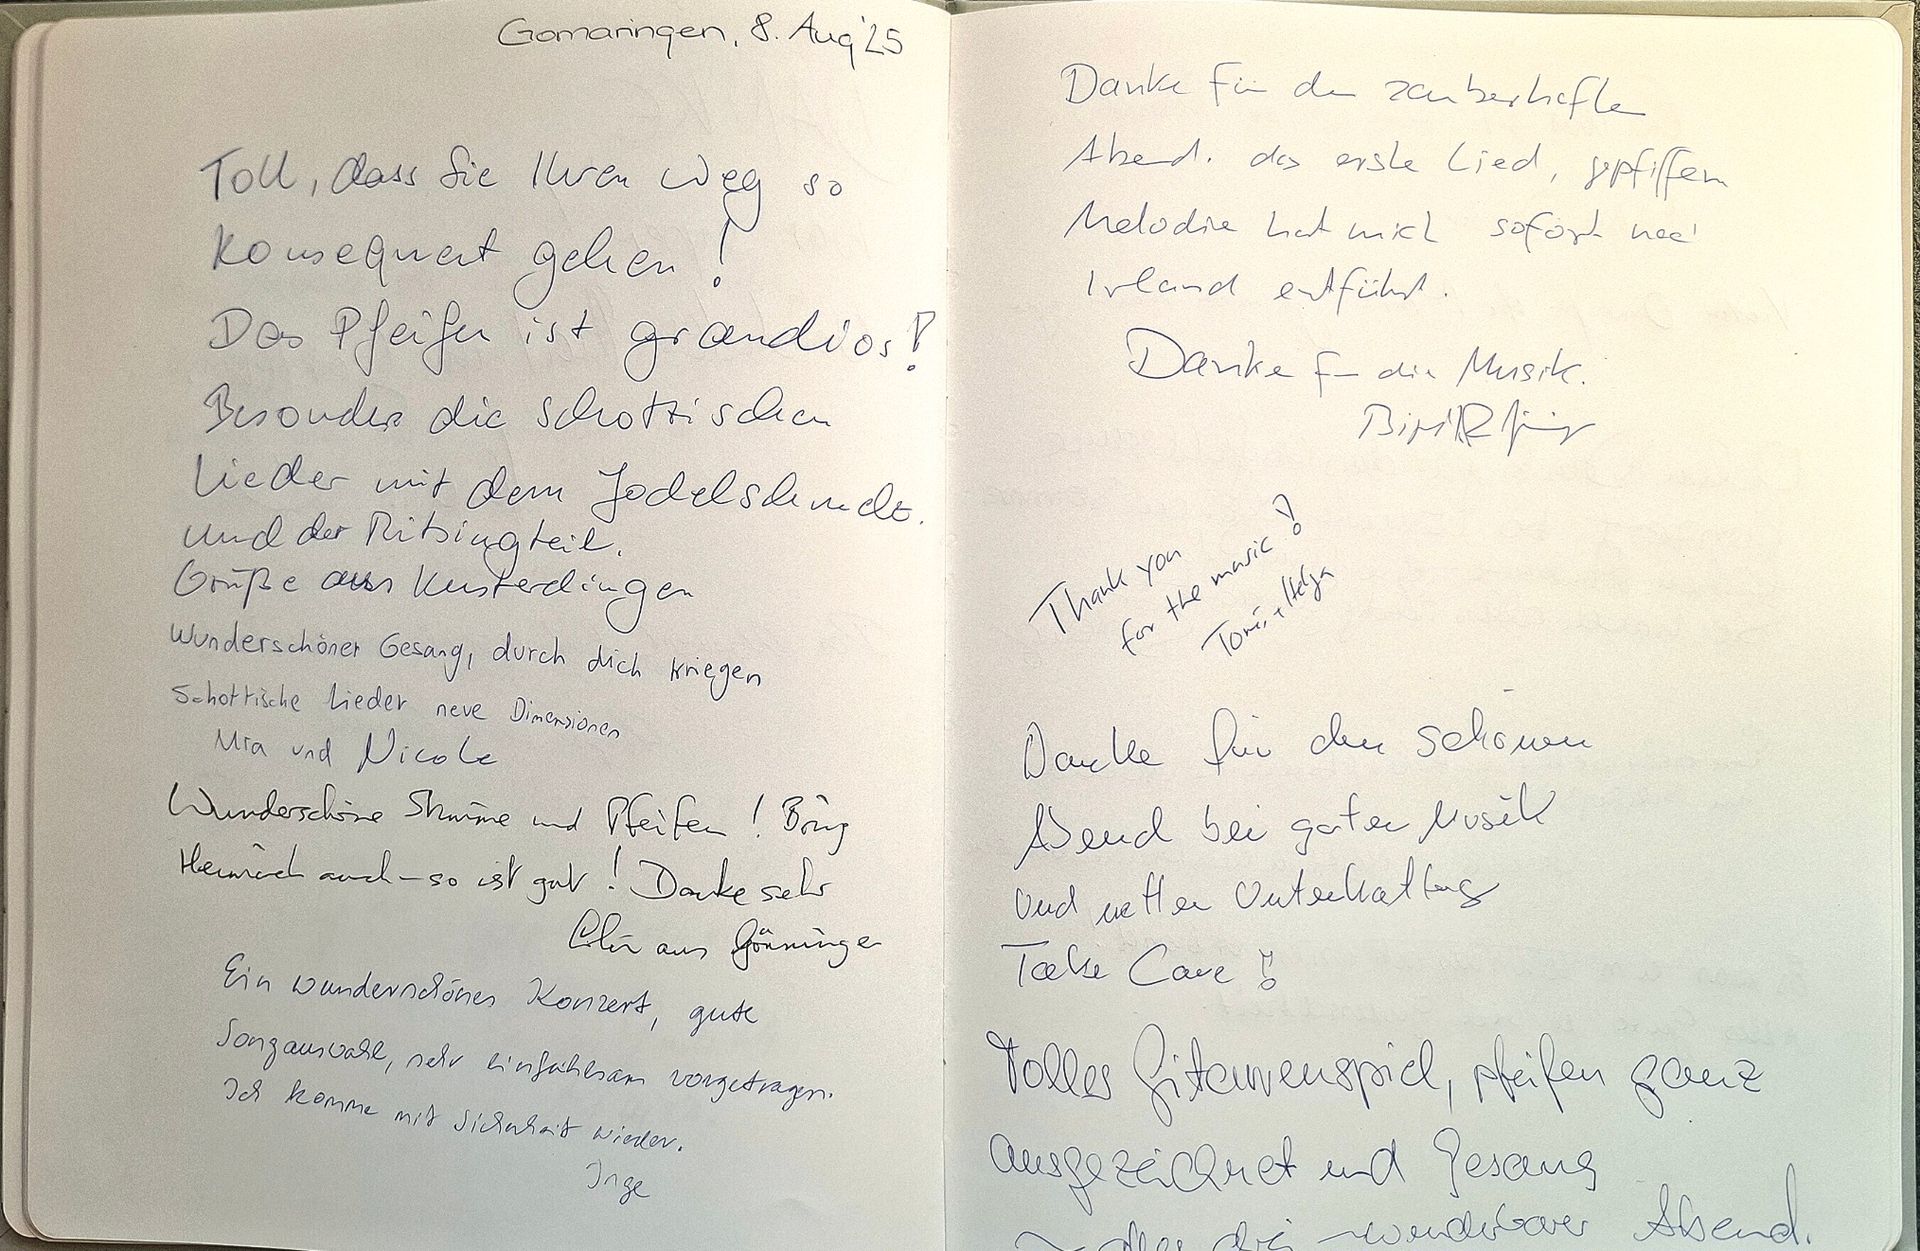 Gomaringen, 8. Aug '25
Toll, dass Sie Ihren Weg so
konsequent gehen!
Das Pfeifen ist grandios!
Besonders die schottischen
Lieder mit dem
und der Mitsingteil.
Grüße aus Kusterdingen
Wunderschöner Gesang, durch dich kriegen
Schottische Lieder neue Dimensionen
Mia und Nicole
Wunderschöne Stimme und Pfeifen! Bring
Heinrich auch – so ist gut! Danke sehr
aus Gönningen
Ein wunderschönes Konzert, gute
Songauswahl, sehr einfühlsam vorgetragen.
Ich komme mit Sicherheit wieder.
Inge
Danke für den zauberhaften
Abend. das erste Lied, gepfiffen
Melodie hat mich sofort nach
Irland entführt.
Danke für die Musik.
Thank you
for the music!
+ Helga
Danke für den schönen
Abend bei guter Musik
und netter Unterhaltung
Take Care!
Tolles Gitarrenspiel, pfeifen ganz
ausgezeichnet und Gesang
wunderbarer Abend.